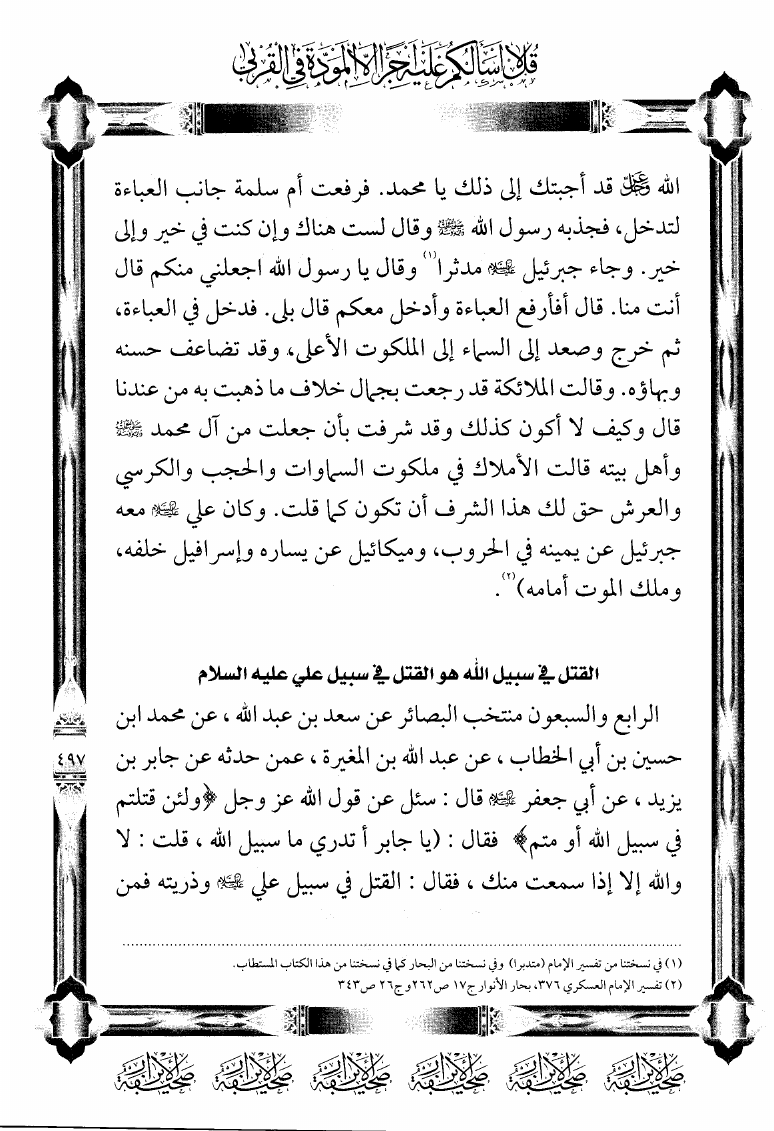 قل لا أسألكم عليه أجرا إلا المودة في القربى
الله عز وجل قد أجبتك إلى ذلك يا محمد. فرفعت أم سلمة جانب العباءة
لتدخل، فجذبه رسول الله ﷺ وقال لست هناك وإن كنت في خير وإلى
خير. وجاء جبرئيل عليه السلام مدثرا(١) وقال يا رسول الله اجعلني منكم قال
أنت منا. قال أفأرفع العباءة وأدخل معكم قال بلى. فدخل في العباءة،
ثم خرج وصعد إلى السماء إلى الملكوت الأعلى، وقد تضاعف حسنه
وبهاؤه. وقالت الملائكة قد رجعت بجمال خلاف ما ذهبت به من عندنا
قال وكيف لا أكون كذلك وقد شرفت بأن جعلت من آل محمد ﷺ
وأهل بيته قالت الأملاك في ملكوت السماوات والحجب والكرسي
والعرش حق لك هذا الشرف أن تكون كما قلت. وكان علي عليه السلام معه
جبرئيل عن يمينه في الحروب، وميكائيل عن يساره وإسرافيل خلفه،
وملك الموت أمامه)(٢).
القتل في سبيل الله هو القتل في سبيل علي عليه السلام
الرابع والسبعون منتخب البصائر عن سعد بن عبد الله ، عن محمد ابن
حسين بن أبي الخطاب ، عن عبد الله بن المغيرة ، عمن حدثه عن جابر بن
يزيد ، عن أبي جعفر عليه السلام قال : سئل عن قول الله عز وجل ﴿ولئن قتلتم
في سبيل الله أو متم﴾ فقال : (يا جابر أ تدري ما سبيل الله ، قلت : لا
والله إلا إذا سمعت منك ، فقال : القتل في سبيل علي عليه السلام وذريته فمن
٤٩٧
(١) في نسختنا من تفسير الإمام (متدبرا) وفي نسختنا من البحار كما في نسختنا من هذا الكتاب المستطاب.
(٢) تفسير الإمام العسكري ٣٧٦، بحار الأنوار ج١٧ ص٢٦٢ و ج٢٦ ص٣٤٣
صحيفة الأبرار صحيفة الأبرار صحيفة الأبرار صحيفة الأبرار صحيفة الأبرار صحيفة الأبرار